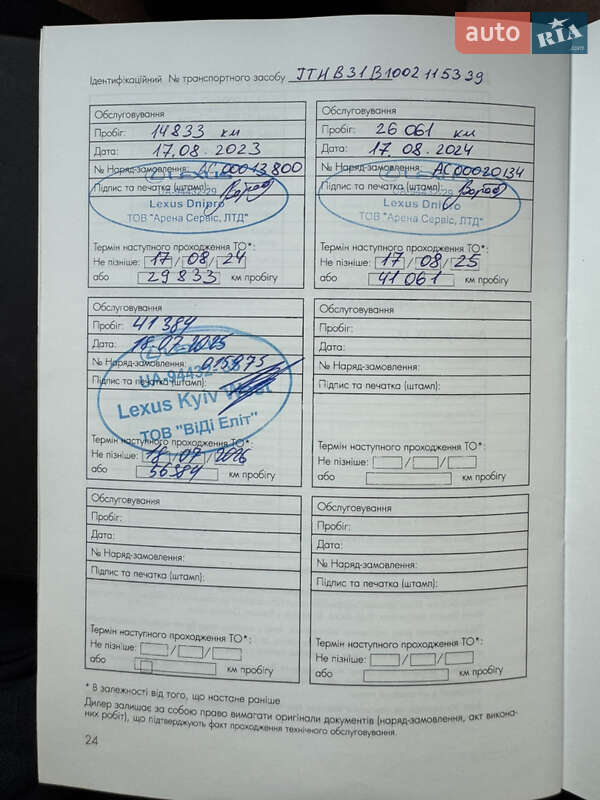 auto RIA.com
Ідентифікаційний № транспортного засобу JTHB31B1002115339
Обслуговування
Пробіг: 14833 км
Дата: 17.08.2023
№ Наряд-замовлення: АС00013800
Підпис та печатка (штамп):
UA-94432-29
Lexus Dnipro
ТОВ "Арена Сервіс, ЛТД"
Термін наступного проходження ТО*:
Не пізніше: 17/08/24
або 29833 км пробігу
Обслуговування
Пробіг: 26 061 км
Дата: 17.08.2024
№ Наряд-замовлення: АС00020134
Підпис та печатка (штамп):
UA-94432-29
Lexus Dnipro
ТОВ "Арена Сервіс, ЛТД"
Термін наступного проходження ТО*:
Не пізніше: 17/08/25
або 41061 км пробігу
Обслуговування
Пробіг: 41384
Дата: 18.07.2025
№ Наряд-замовлення: 915875
Підпис та печатка (штамп):
Lexus Kyiv West
ТОВ "ВіДі Еліт"
Термін наступного проходження ТО*:
Не пізніше: 18/07/2026
або 56384 км пробігу
Обслуговування
Пробіг:
Дата:
№ Наряд-замовлення:
Підпис та печатка (штамп):
Термін наступного проходження ТО*:
Не пізніше: / /
або км пробігу
Обслуговування
Пробіг:
Дата:
№ Наряд-замовлення:
Підпис та печатка (штамп):
Термін наступного проходження ТО*:
Не пізніше: / /
або км пробігу
Обслуговування
Пробіг:
Дата:
№ Наряд-замовлення:
Підпис та печатка (штамп):
Термін наступного проходження ТО*:
Не пізніше: / /
або км пробігу
* В залежності від того, що настане раніше
Дилер залишає за собою право вимагати оригінали документів (наряд-замовлення, акт викона-
них робіт), що підтверджують факт проходження технічного обслуговування.
24